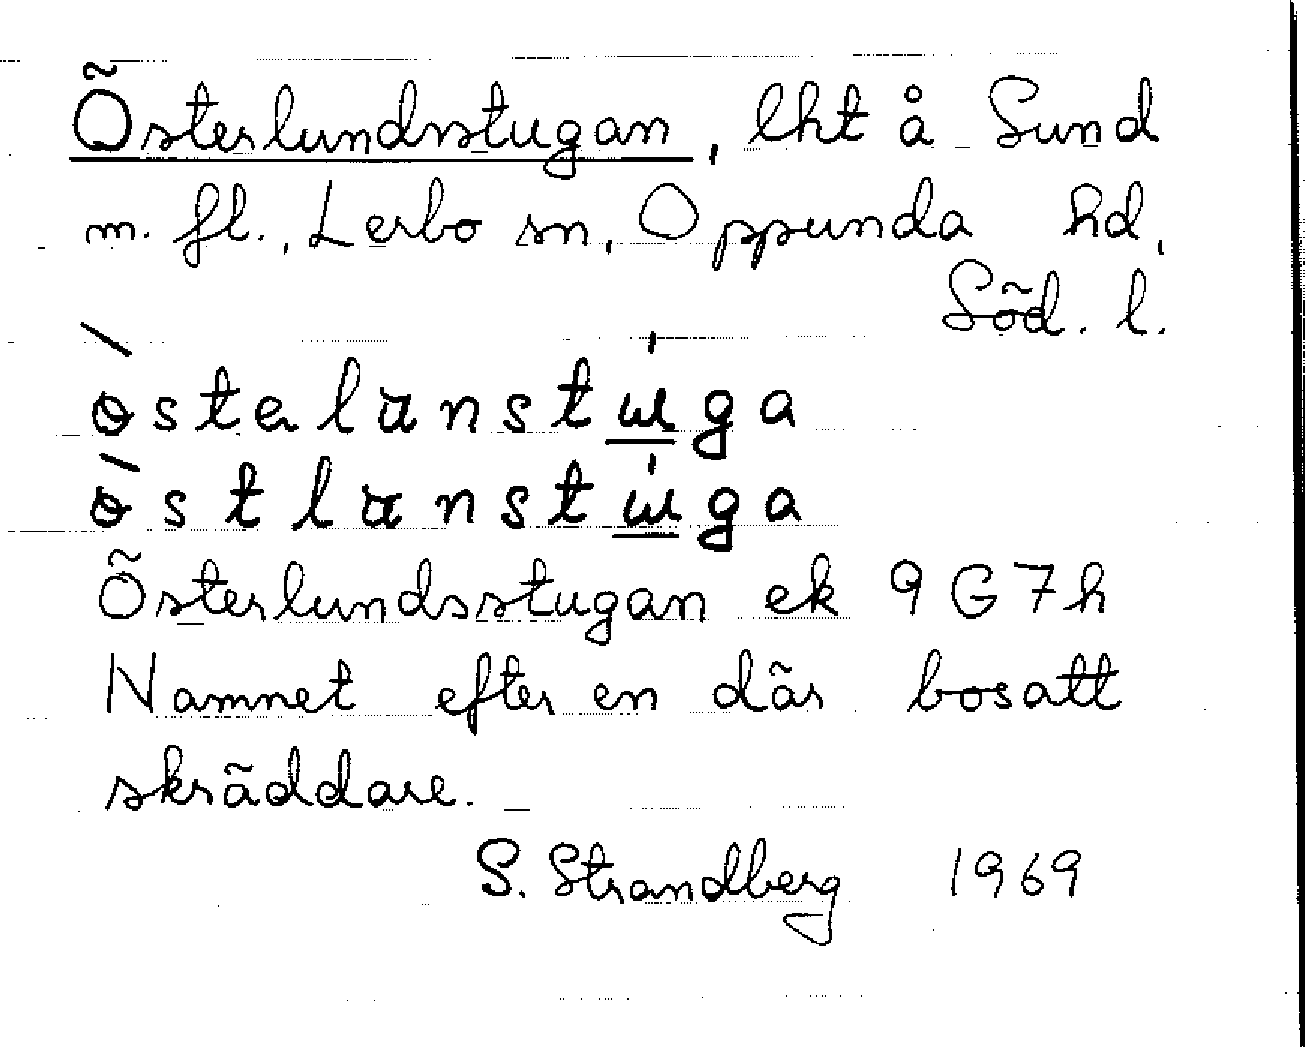 Österlundsstugan, lht å Sund
m. fl., Lerbo sn, Oppunda hd,
Söd. l.
Österlundsstugan ek 9G7h
Namnet efter en där bosatt
skräddare.
S. Strandberg 1969